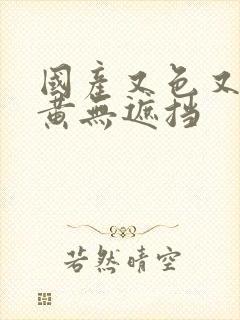 國產又色又
黃無遮挡
若然晴空